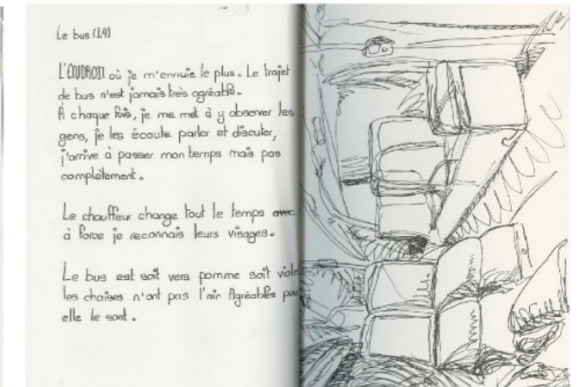 Le bus (L4)
L'ENDROIT où je m'ennuie le plus. Le trajet
de bus n'est jamais très agréable.
À chaque fois, je me met à y observer les
gens, je les écoute parler et discuter,
j'arrive à passer mon temps mais pas
complètement.
Le chauffeur change tout le temps avec
à force je reconnais leurs visages.
Le bus est soit vers pomme soit viole
les chaises n'ont pas l'air Agréables pou
elle le sont.